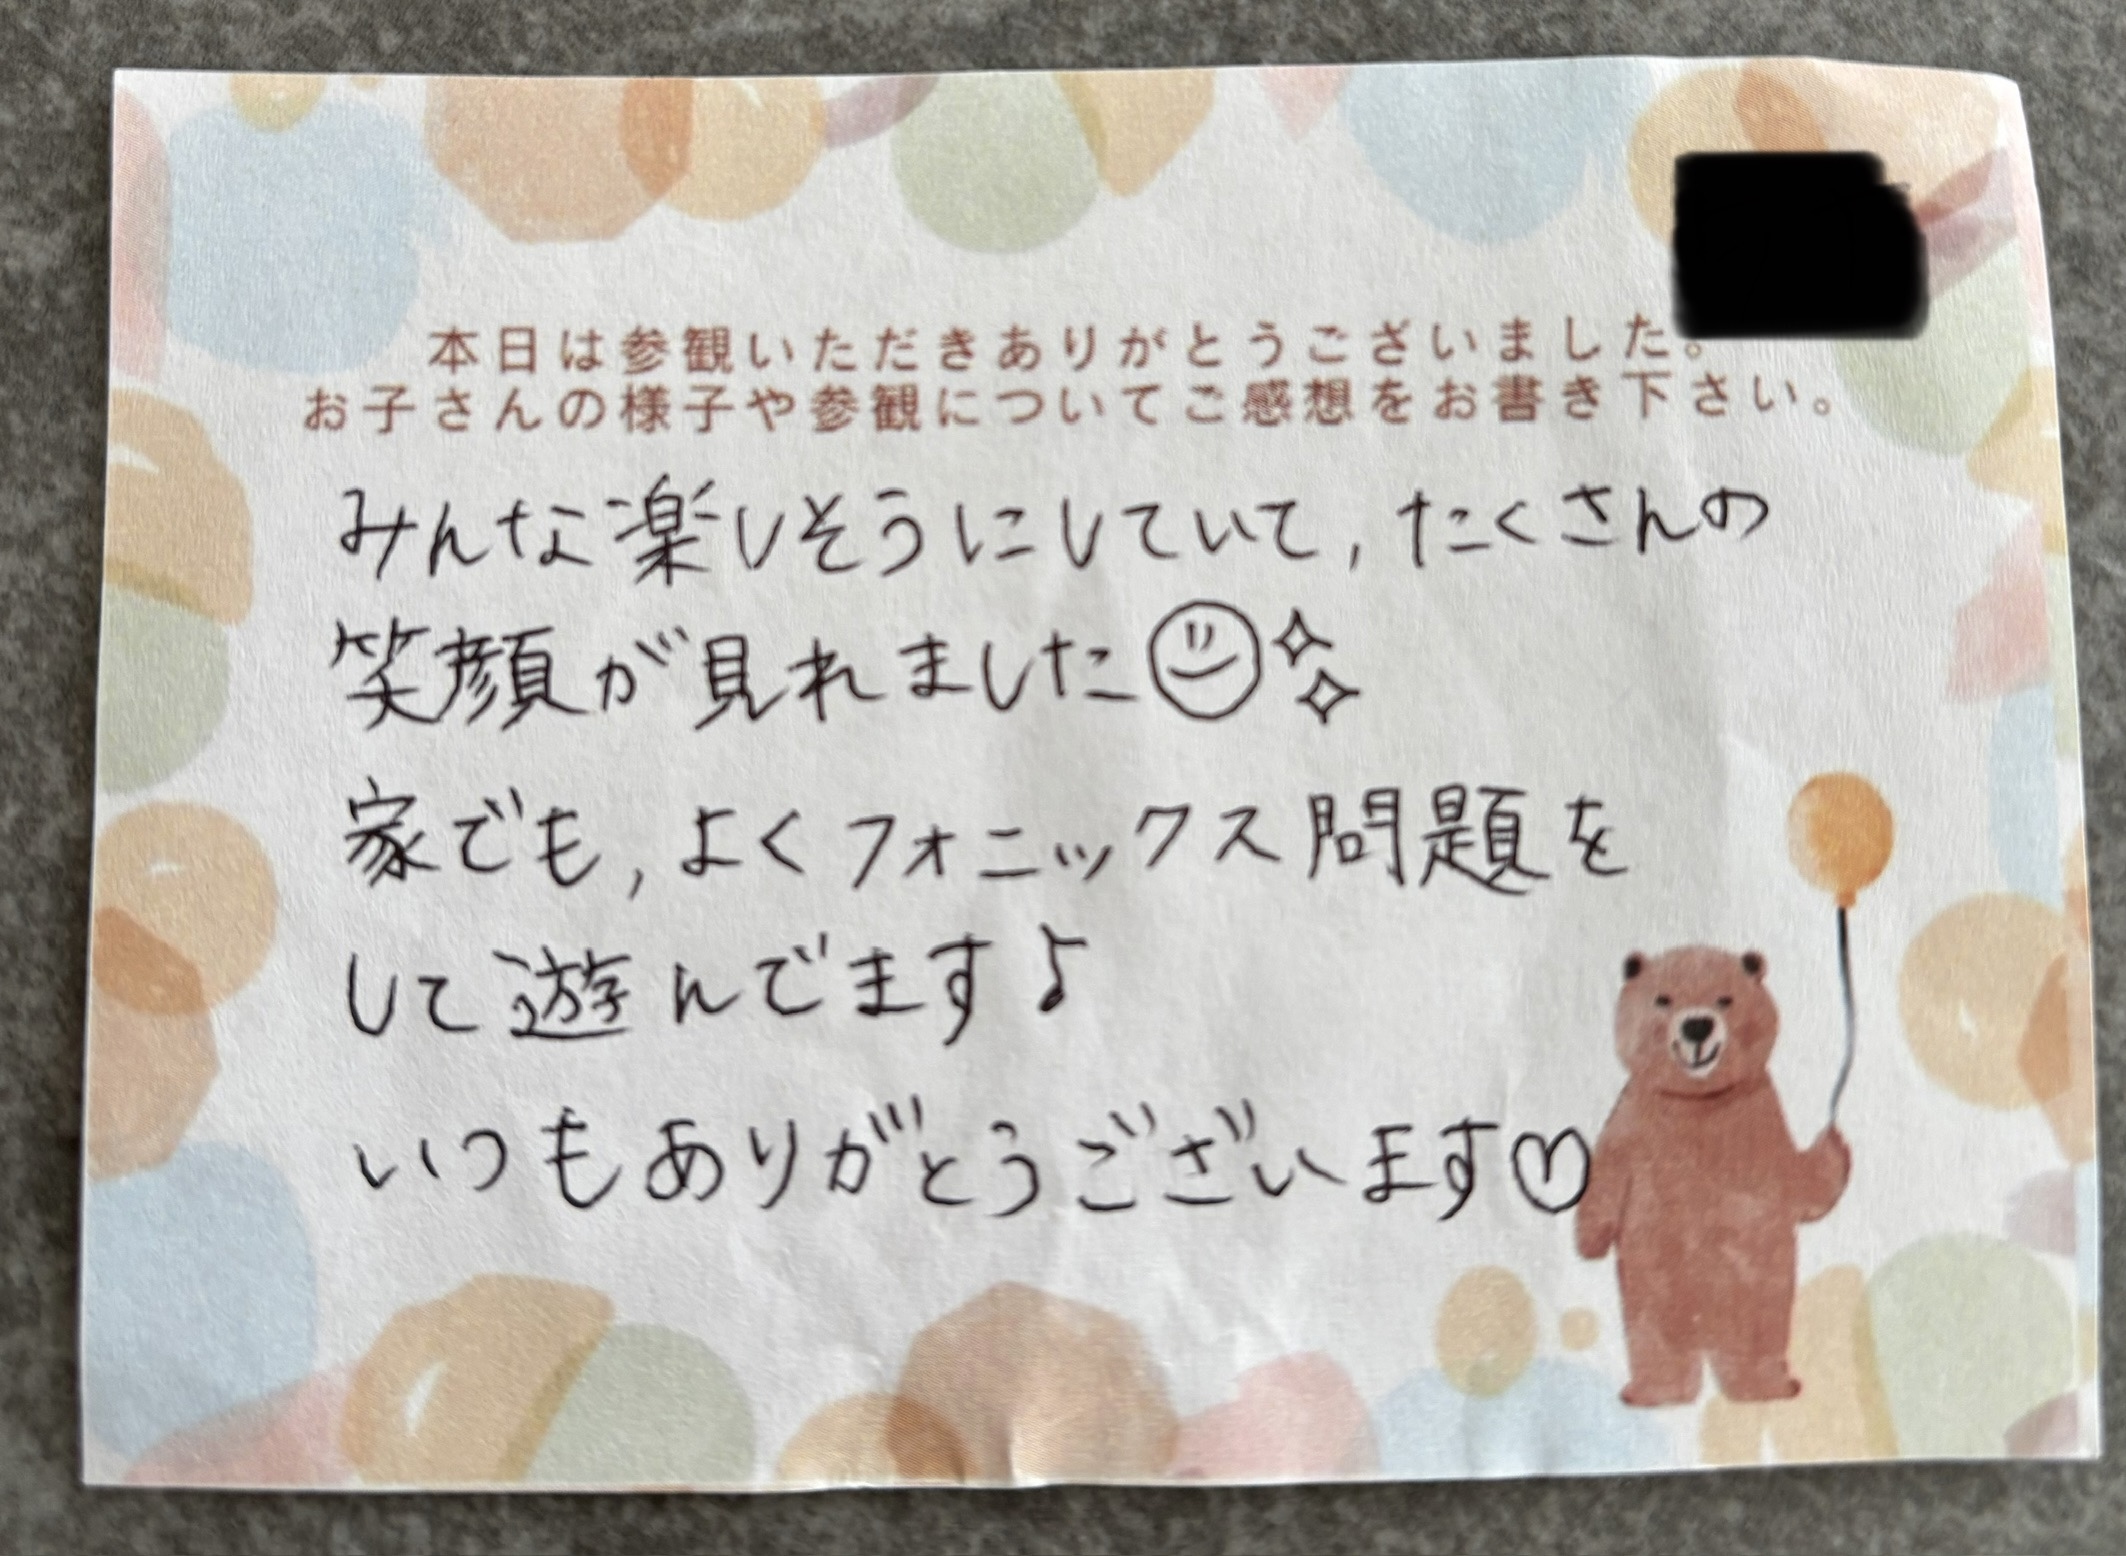 本日は参観いただきありがとうございました。
お子さんの様子や参観についてご感想をお書き下さい。
みんな楽しそうにしていて,たくさんの
笑顔が見れました
家でも,よくフォニックス問題を
して遊んでます♪
いつもありがとうございます♡